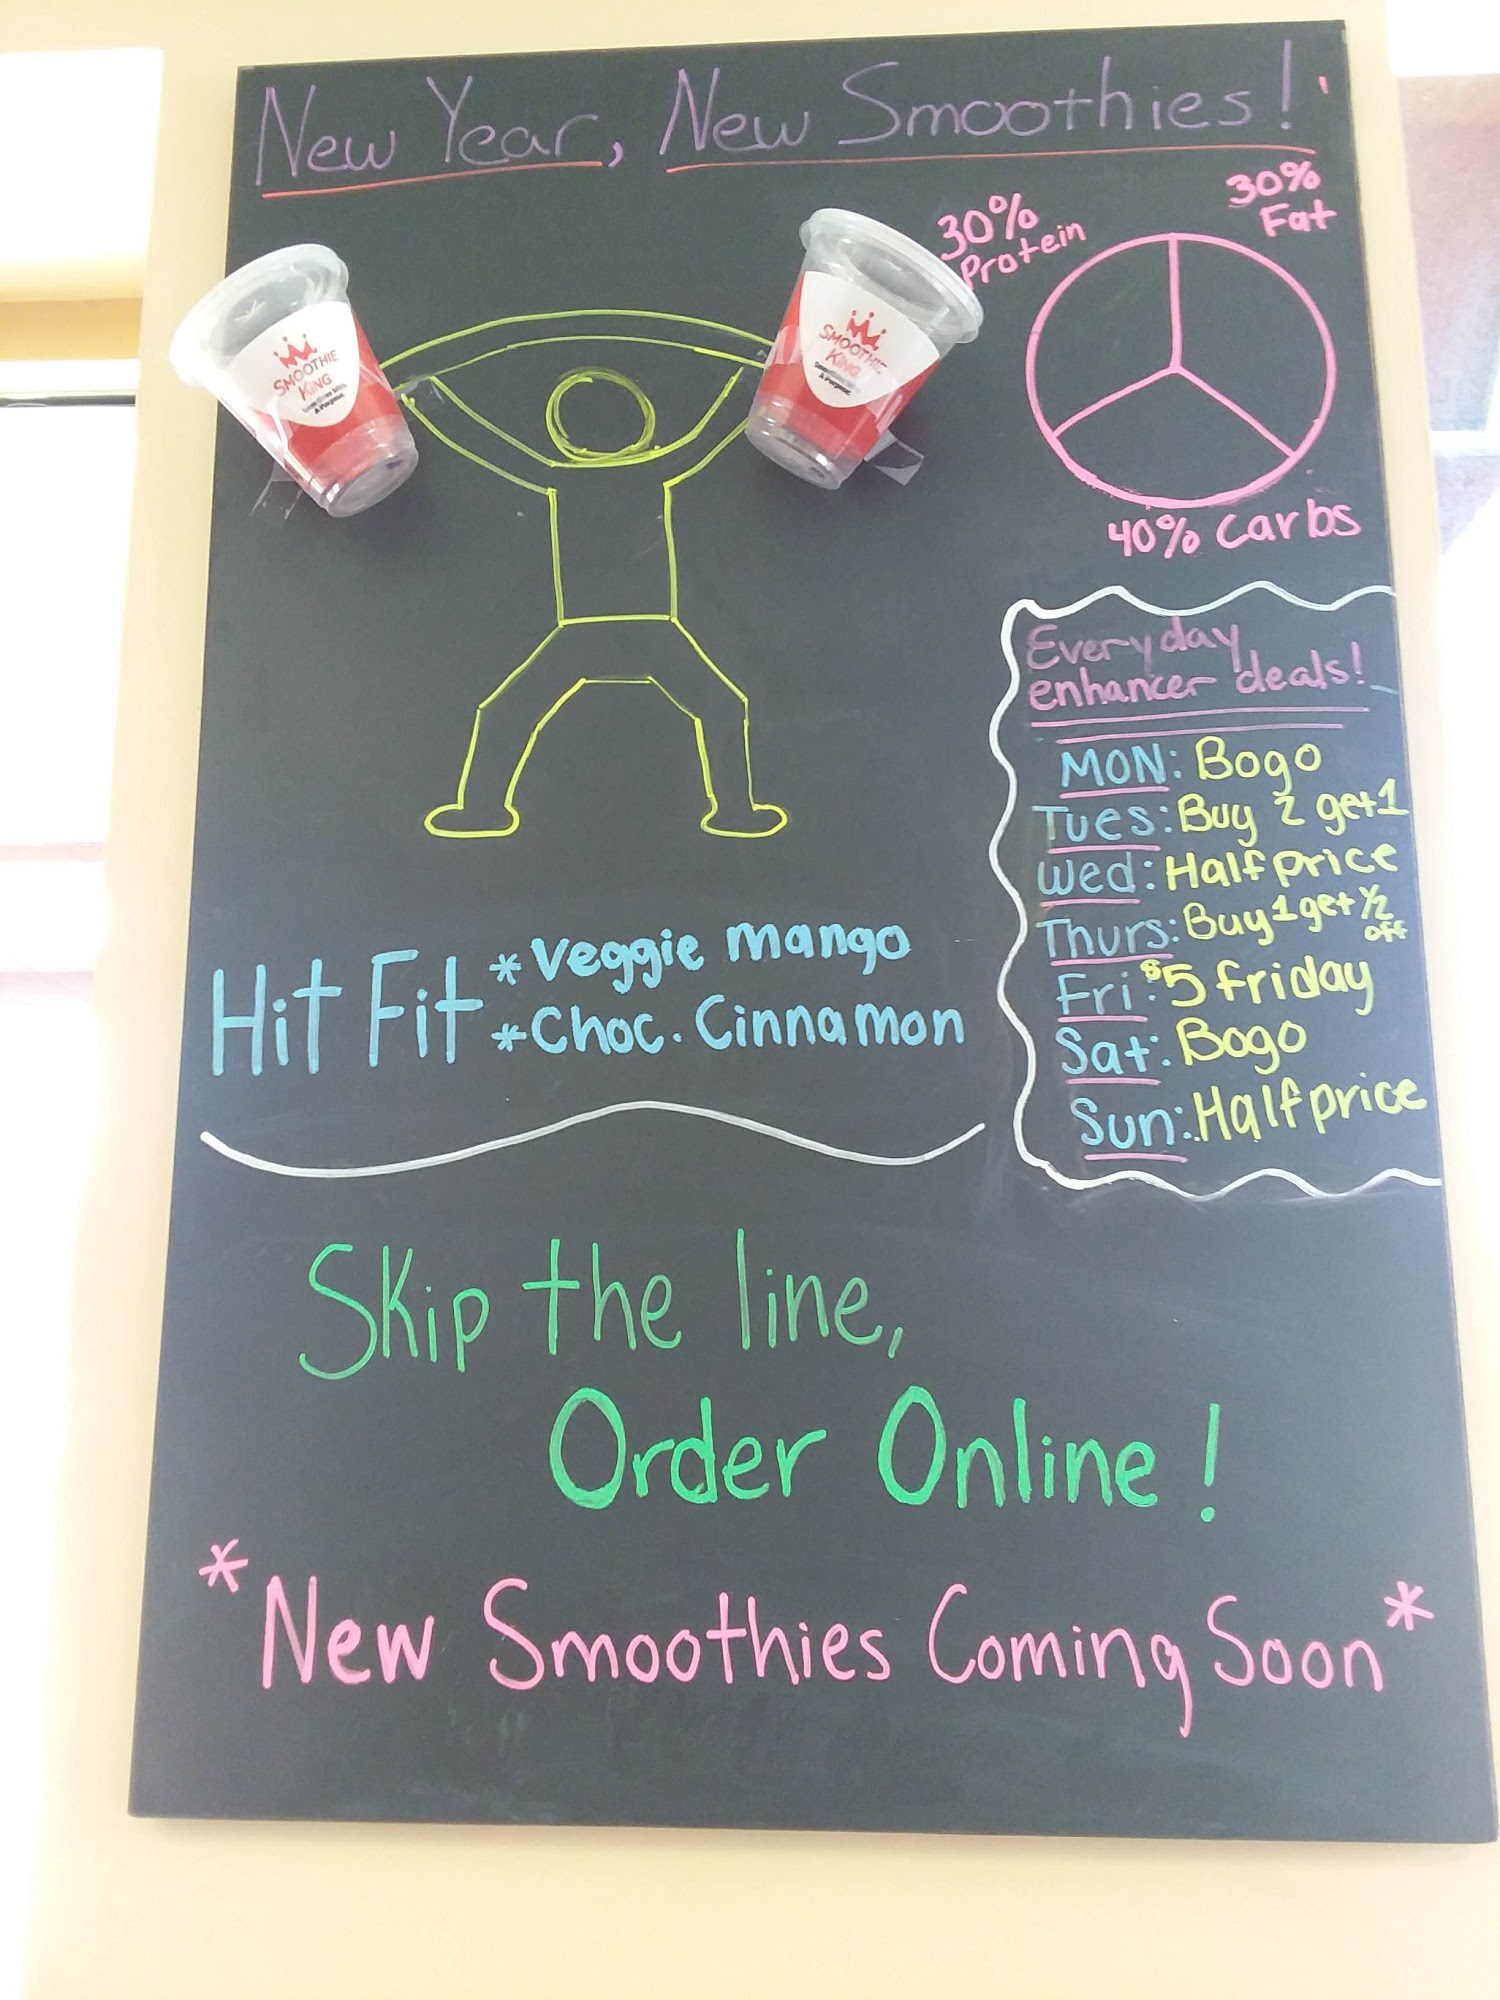 New Year, New Smoothies!
SMOOTHIE
KING
Smoothies With
A Purpose.
SMOOTHIE
KING
Smoothies With
A Purpose.
30%
Protein
30%
Fat
40% Carbs
Everyday
enhancer deals!
MON: Bogo
Tues: Buy 2 get 1
Wed: Half price
Thurs: Buy 1 get 1/2
off
Fri: $5 friday
Sat: Bogo
Sun: Half price
Hit Fit
*Veggie mango
*Choc. Cinnamon
Skip the line,
Order Online!
*New Smoothies Coming Soon*